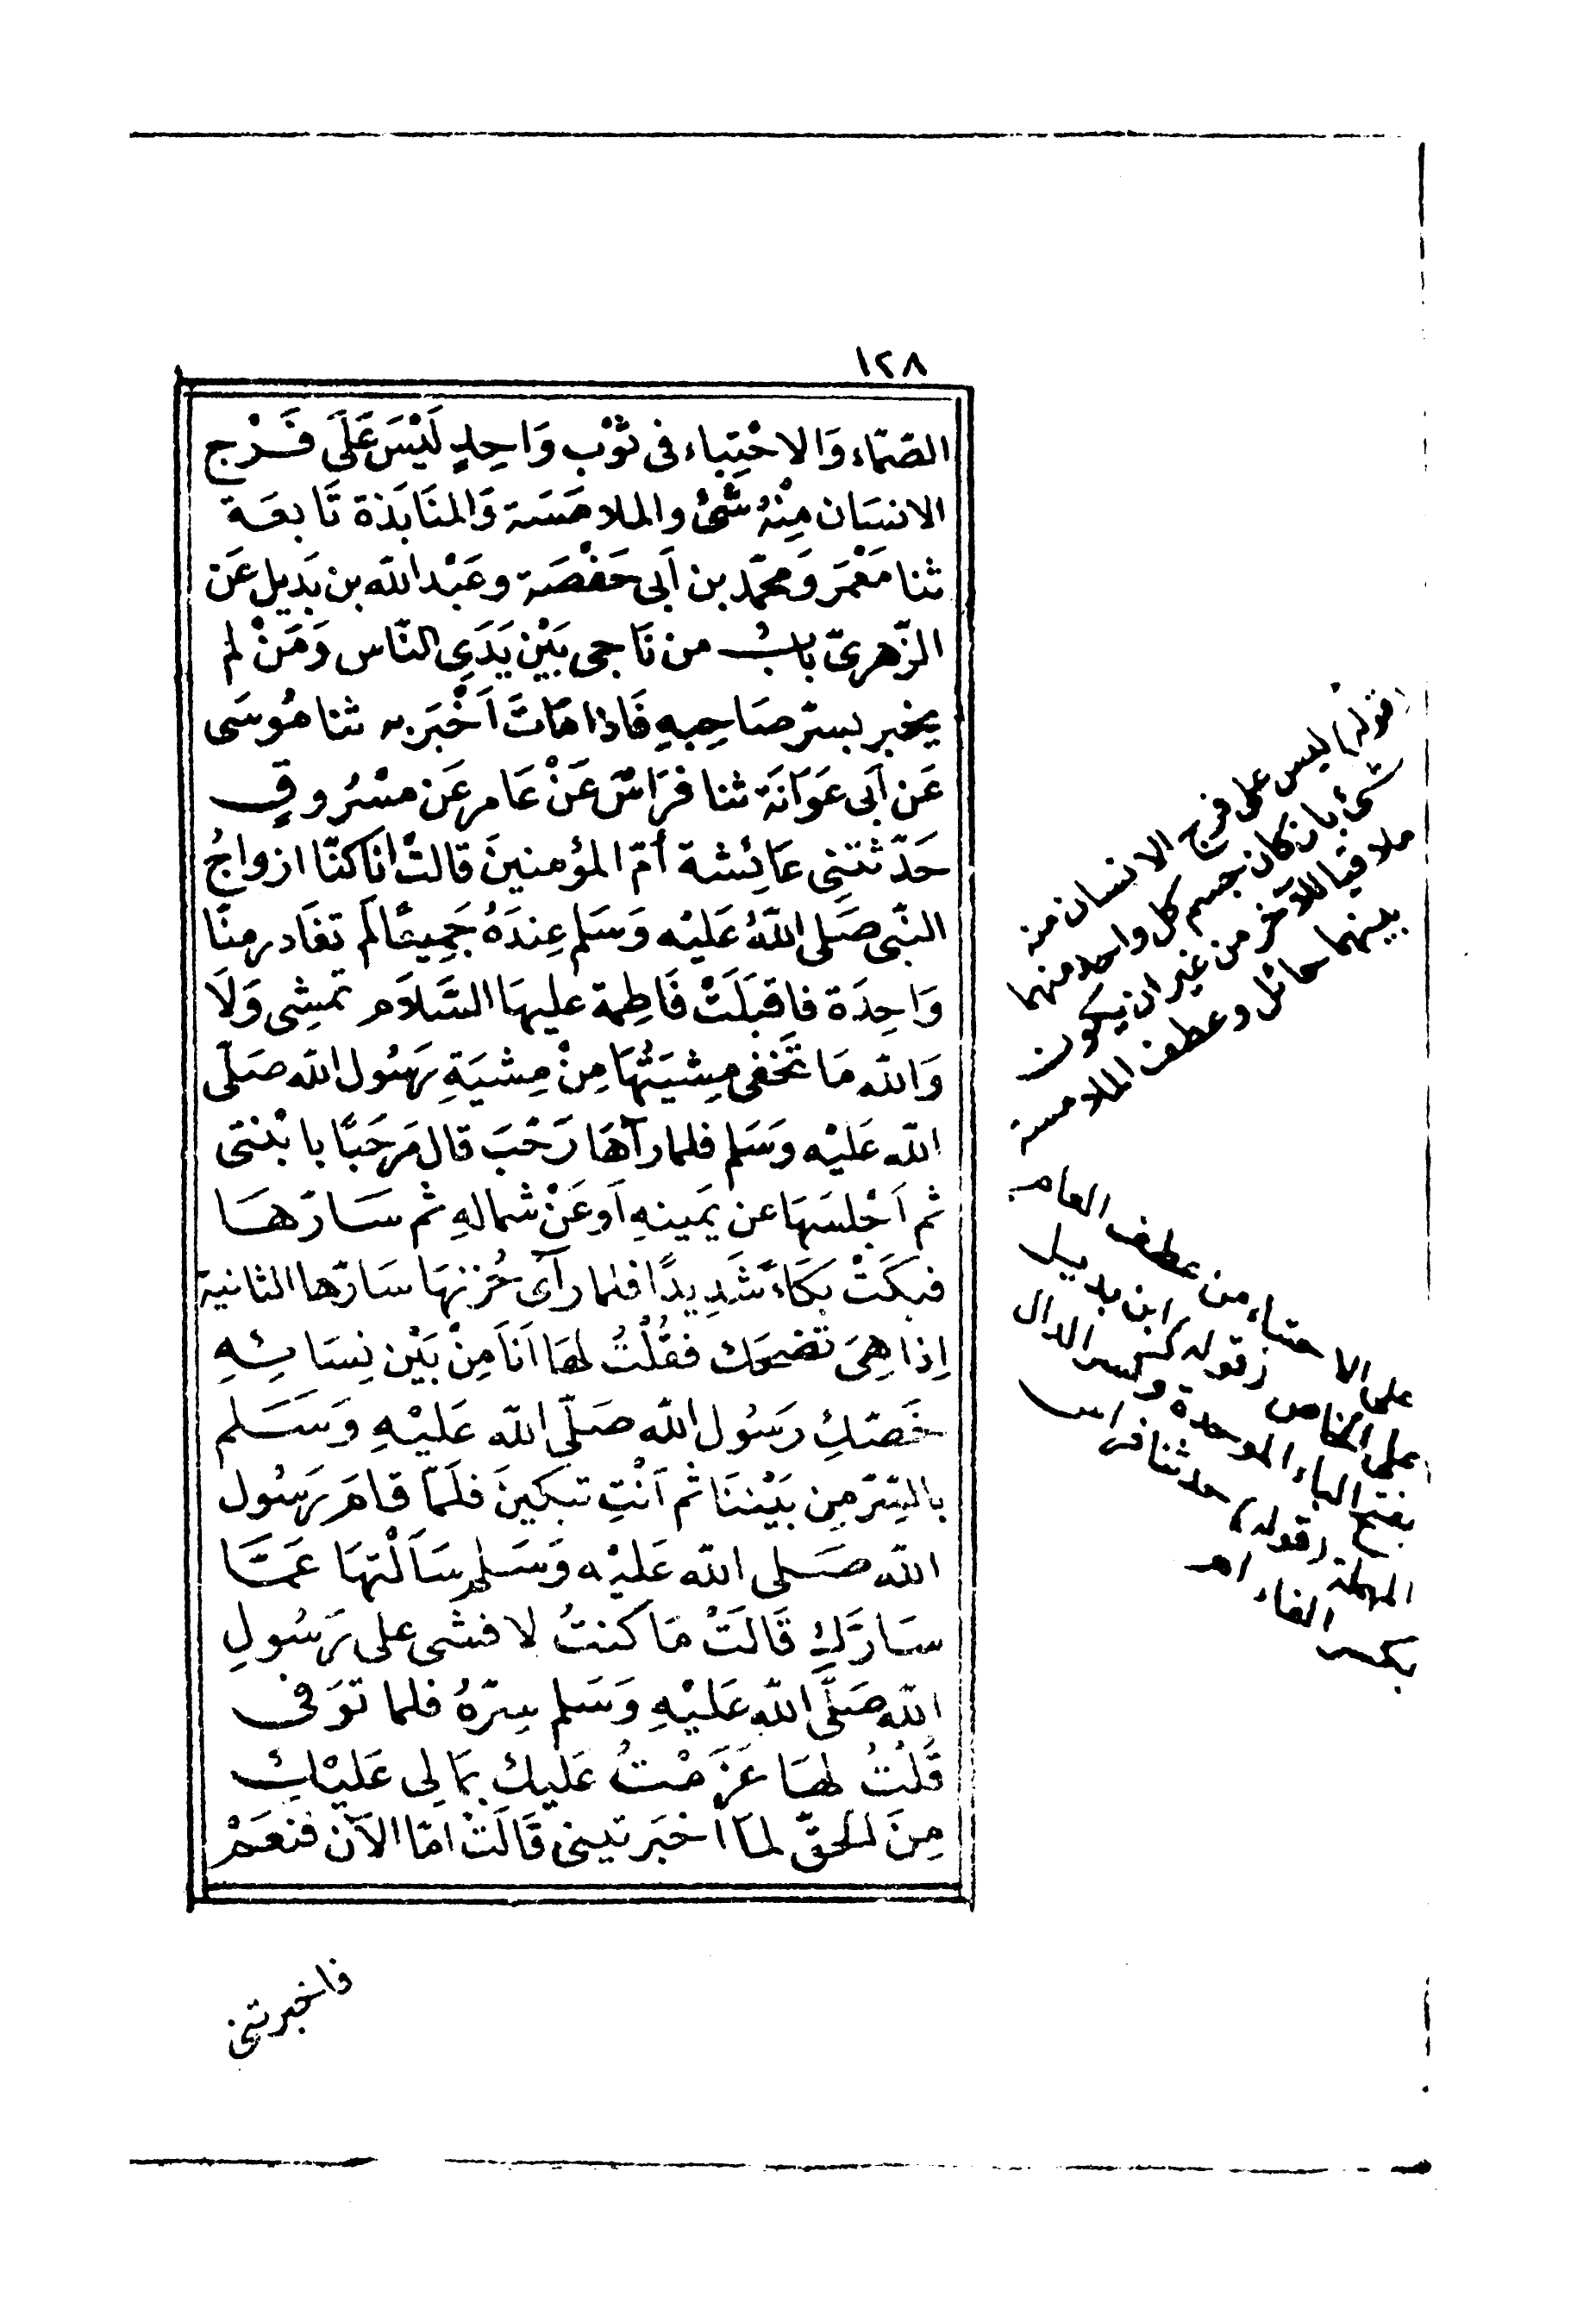 ١٢٨
الصّمّاء وَالاحْتِباء فى ثوْب وَاحِدٍ لَيْسَ عَلَى فَرْج
الانسَان مِنْهُ شَىْءٌ والملامَسَة وَالمنَابَذة تَابعَة
ثنا مَعْمَر وَمحمّد بن اَبى حَفْصَة وعَبْد الله بن بَديل عَن
الزّهرىّ بابُ من نَاجى بَيْن يَدَىِ النّاس وَمَنْ لم
يخبر بسرّ صَاحِبهِ فَاذا مَاتَ اَخْبَر به ثنا مُوسَى
عَن اَبى عَوَانَة ثنا فرَاسٌ عَنْ عَامر عَن مسْرُوقٍ
حَدّثتنِى عَائِشة أمّ المؤمنينَ قالتْ اناكنّا ازواجُ
النّبى صَلى اللهُ عَليْه وَسَلم عِندَهُ جَمِيعًا لَم تغَادر منّا
وَاحِدَة فاقبَلَتْ فَاطِمة عليهَا السَّلاَم تمشِى وَلَا
وَالله مَا تَخفى مِشيَتُهَا مِنْ مِشيَةِ رَسُول الله صَلّى
الله عَليْه وَسَلم فلما رآهَا رَحّبَ قال مَرحَبًا بابْنتى
ثم اَجْلسَهَا عن يَمينهِ اَو عَنْ شمالهِ ثم سَارّهَا
فبكَتْ بكَاءً شَدِيدًا فلما رآى حُزنهَا سَارّها الثانية
اِذا هِىَ تضحَك فقُلْتُ لهَا اَنَا مِنْ بَيْن نِسَائهِ
خَصّكِ رَسُول الله صَلّى الله عَليْهِ وَسَلم
بالسِّرّ مِن بَيْننَا ثم اَنْتِ تبكينَ فلَمّا قامَ رَسُول
الله صَلى الله عَليْه وَسَلم سَاَلْتهَا عَمّا
سَارّكِ قَالَتْ مَا كنتُ لافشى على رَسُولِ
الله صَلَّى الله عَليْهِ وَسَلم سِرّهُ فلما توَفى
قُلْتُ لهَا عَزَمْتُ عَليكِ بمَا لِى عَليْكِ
مِنَ الحقّ لمَا اَخبَرتينى قَالَتْ امّا الآن فنعَمْ
(قوله) ليس على فرج الانسان منه
شىء بان كان جسم كل واحد منهما
ملاقيا للآخر من غير ان يكون
بينهما حائل وعطف الملامسة
على الاحتباء من عطف العام
على الخاص (قوله) ابن بديل
بفتح الباء الموحدة وكسر الدال
المهملة (قوله) حدثنا فراس
بكسر الفاء اهـ
فاخبرتنى